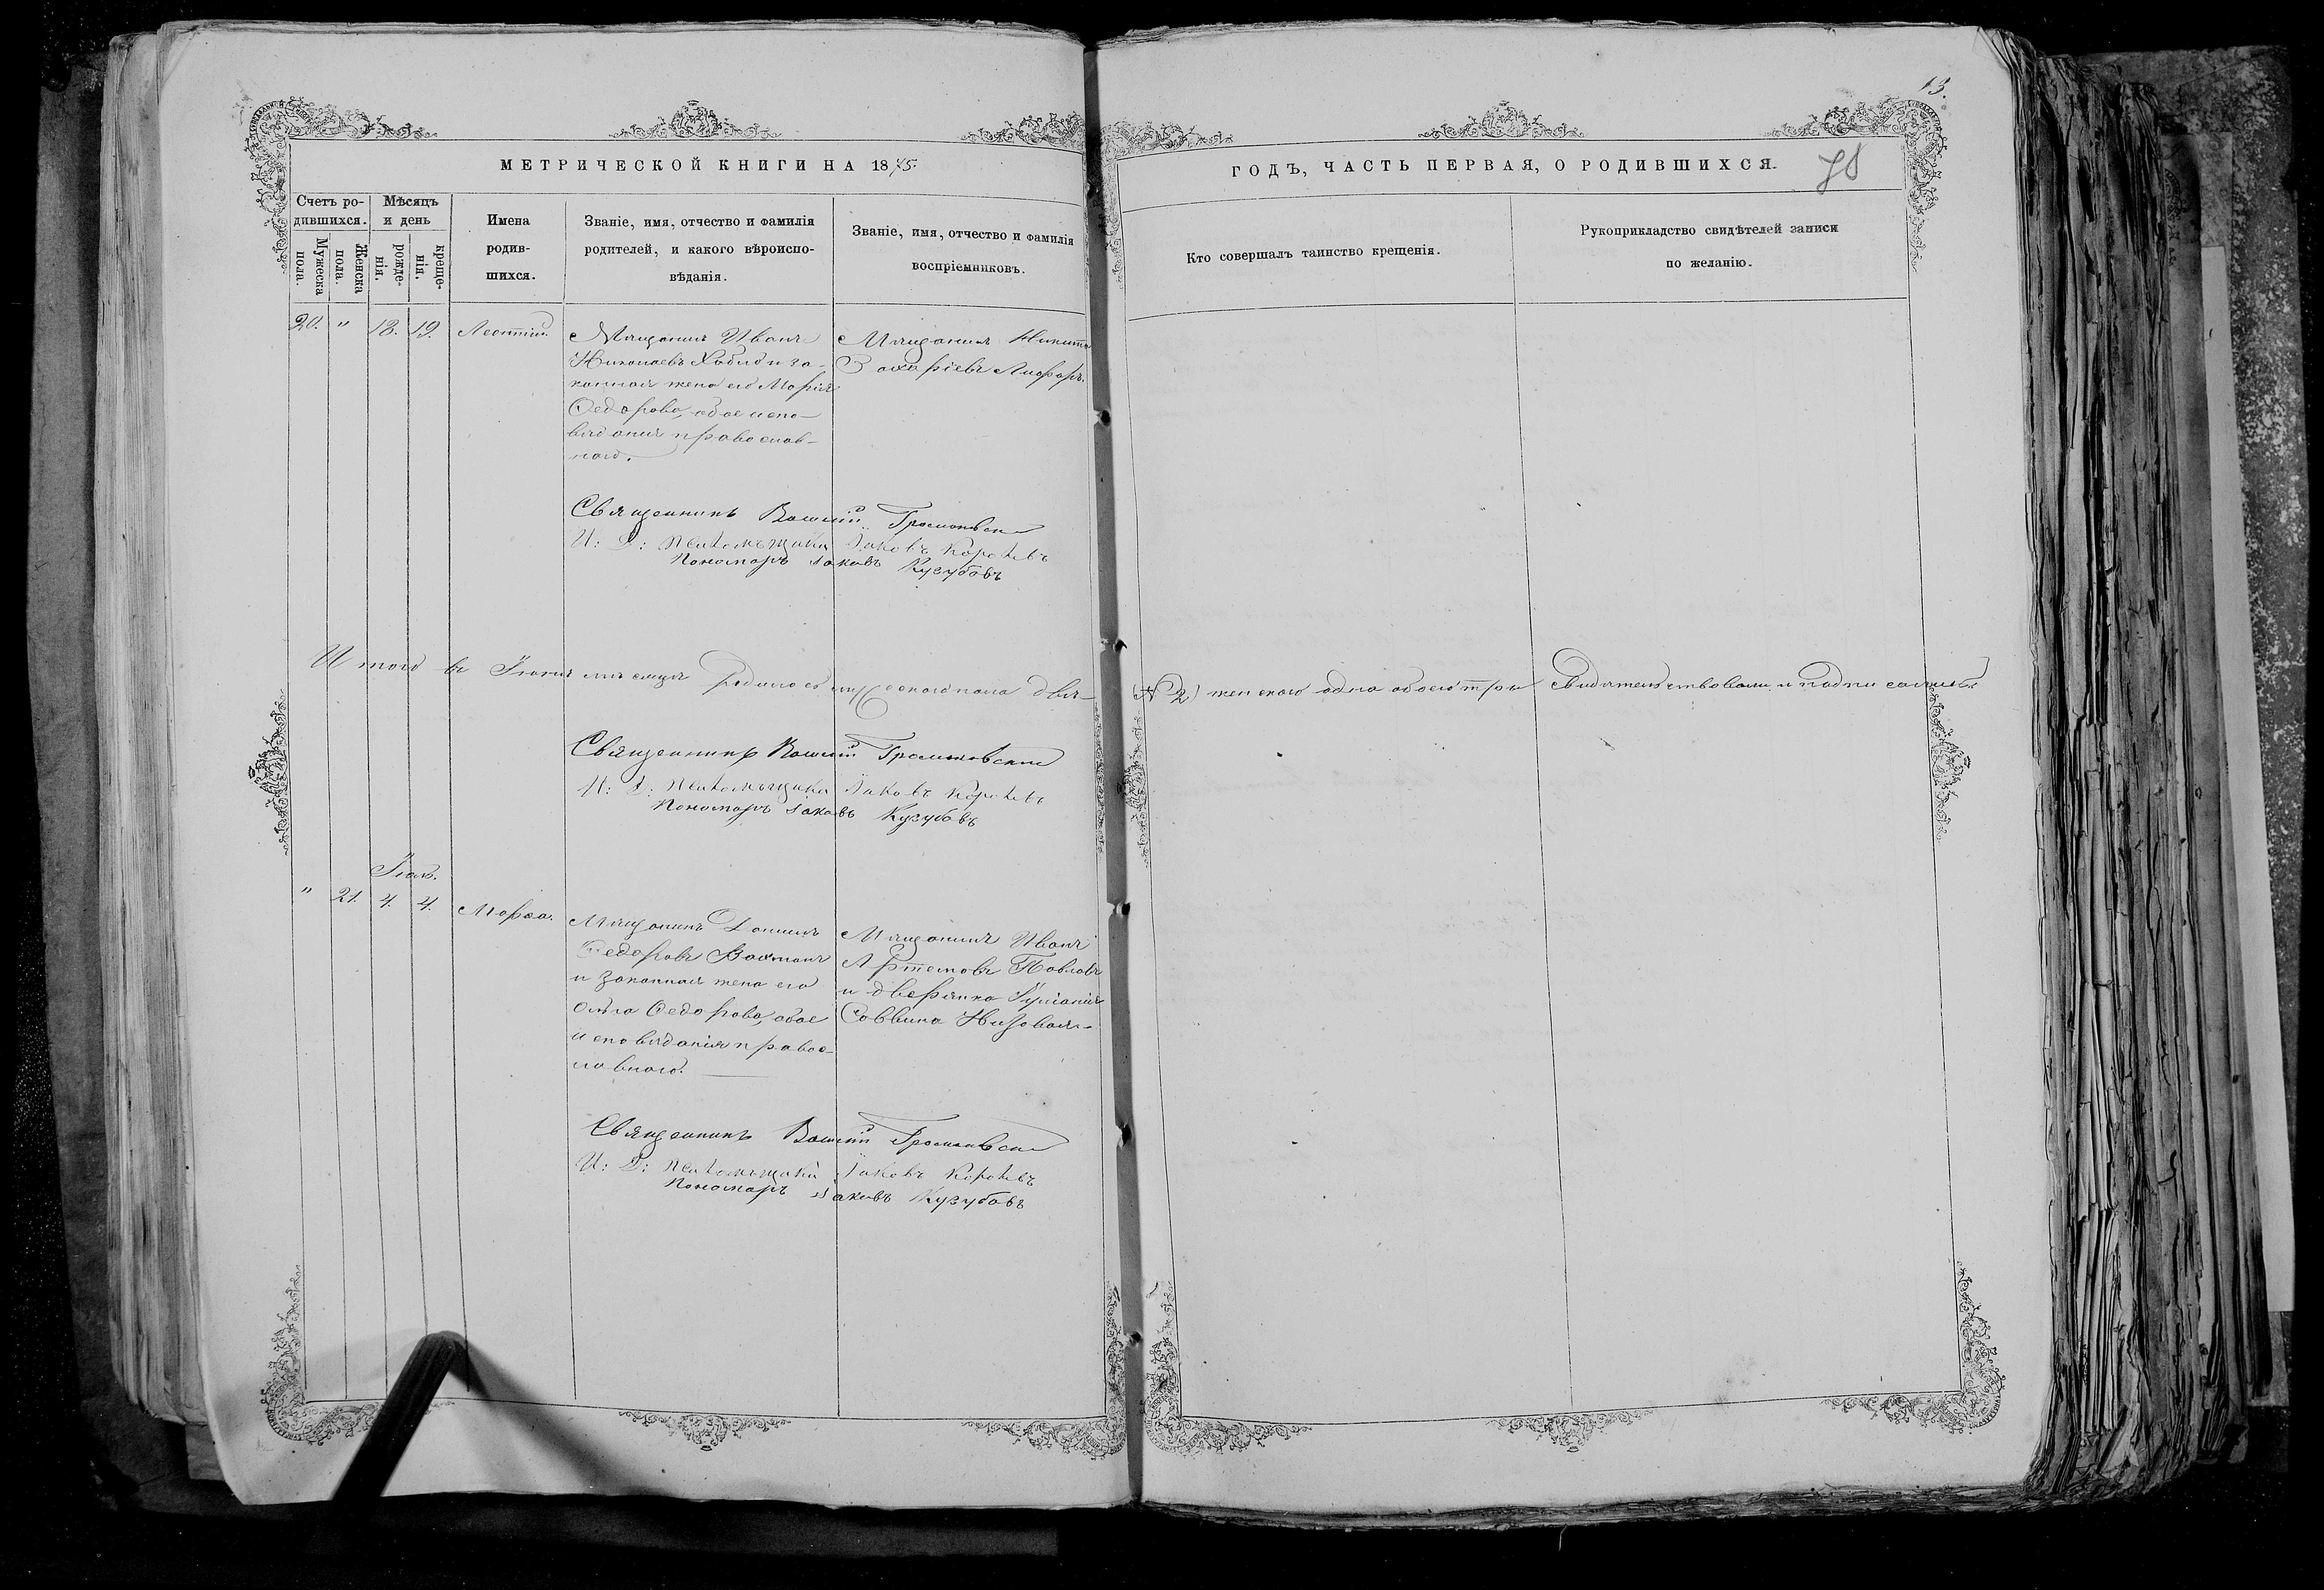 13.
МЕТРИЧЕСКОЙ КНИГИ НА 1875
ГОДЪ, ЧАСТЬ ПЕРВАЯ, О РОДИВШИХСЯ.
Счетъ ро-
дившихся.
Мужеска
пола.
Женска
пола.
Мѣсяцъ
и день
рожде-
нія.
креще-
нія.
Имена
родив-
шихся.
Званіе, имя, отчество и фамилія
родителей, и какого вѣроиспо-
вѣданія.
Званіе, имя, отчество и фамилія
воспріемниковъ.
Кто совершалъ таинство крещенія.
Рукоприкладство свидѣтелей записи
по желанію.
20. " 18. 19. Леонтій.
Мѣщанинъ Иванъ
Николаевъ и за-
конная жена его Марія
Федорова, обое испо-
вѣданія православ-
наго.
Мѣщанинъ Никита
Захаріевъ
Священникъ Громковскій
И: Д: Псаломщика Іаковъ
Пономарь Іаковъ Кугубовъ
Итого въ Іюнѣ мѣсяцѣ родилось мужескаго пола два
(№ 2) женскаго одна обоего три Свидѣтельствовали и подписались
Священникъ Громковскій
И: Д: Псаломщика Іаковъ
Пономарь Іаковъ Кугубовъ
Іюль.
" 21. 4. 4. Марѳа.
Мѣщанинъ Данилъ
Федоровъ
и законная жена его
Ольга Федорова, обое
исповѣданія правос-
лавнаго.
Мѣщанинъ Иванъ
Артемовъ Павловъ
и дворянка Іуліанія
Саввина
Священникъ Громковскій
И: Д: Псаломщика Іаковъ
Пономарь Іаковъ Кугубовъ